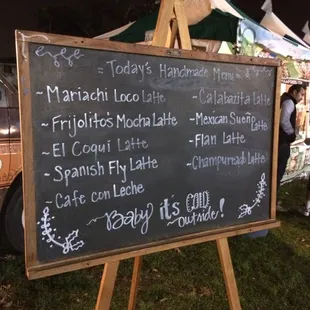 = Today's Handmade Menu =
~ Mariachi Loco Latte
~ Frijolito's Mocha Latte
~ El Coqui Latte
~ Spanish Fly Latte
~ Cafe con Leche
~ Calabazita Latte
~ Mexican Sueño Latte
~ Flan Latte
~ Champurrado Latte
Baby it's COLD outside!